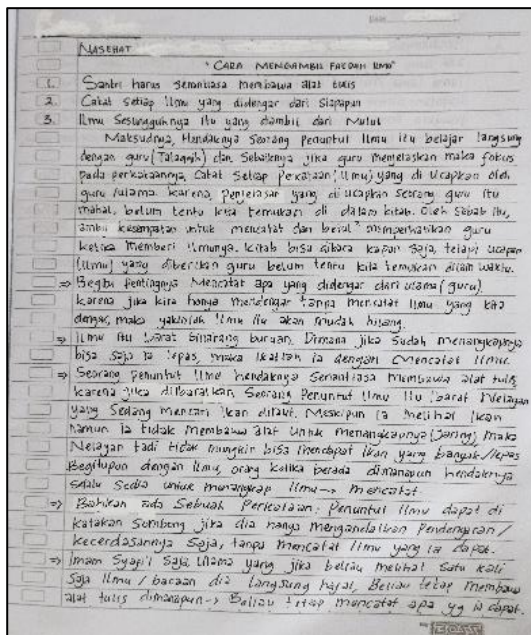 NASEHAT
"CARA MENGAMBIL FAEDAH ILMU"
1. Santri harus senantiasa membawa alat tulis
2. Catat setiap Ilmu yang didengar dari Siapapun
3. Ilmu Sesungguhnya itu yang diambil dari Mulut
Maksudnya, Hendaknya Seorang penuntut Ilmu itu belajar langsung
dengan guru (Talaqqih) dan Sebaiknya jika guru menjelaskan maka fokus
pada perkataannya, Catat Setiap Perkataan (Ilmu) yang di Ucapkan oleh
guru /ulama. Karena, penjelasan yang di ucapkan Seorang guru itu
mahal, belum tentu kita temukan di dalam kitab. Oleh Sebab itu,
ambil kesempatan untuk mencatat dan betul² memperhatikan guru
ketika memberi ilmunya. Kitab bisa dibaca kapan Saja, tetapi ucapan
(Ilmu) yang diberikan guru belum tentu kita temukan dilain waktu.
⇒ Begitu pentingnya Mencatat apa yang didengar dari ulama (guru).
Karena jika kita hanya Mendengar tanpa mencatat Ilmu yang kita
dengar, maka yakinlah Ilmu itu akan mudah hilang.
⇒ Ilmu itu ibarat binatang buruan. Dimana jika sudah menangkapnya
bisa saja ia lepas, maka ikatlah ia dengan Mencatat Ilmu.
⇒ Seorang penuntut Ilmu hendaknya Senantiasa Membawa alat tulis,
karena jika diibaratkan Seorang Penuntut Ilmu itu ibarat Nelayan
yang Sedang mencari ikan dilaut. Meskipun ia Melihat Ikan
namun ia tidak Membawa alat untuk menangkapnya (Jaring), maka
Nelayan tadi tidak mungkin bisa mendapat ikan yang banyak/lepas
Begitupun dengan Ilmu, orang ketika berada dimanapun hendaknya
selalu Sedia untuk menangkap Ilmu → mencatat.
⇒ Bahkan ada Sebuah Perkataan: Penuntut Ilmu dapat di
katakan Sombong jika dia hanya mengandalkan Pendengaran /
kecerdasannya Saja, tanpa mencatat Ilmu yang ia dapat.
⇒ Imam Syafi'i Saja, Ulama yang jika beliau melihat Satu kali
Saja Ilmu / bacaan dia langsung hafal, Beliau tetap membawa
alat tulis dimanapun → Beliau tetap mencatat apa yg ia dapat.